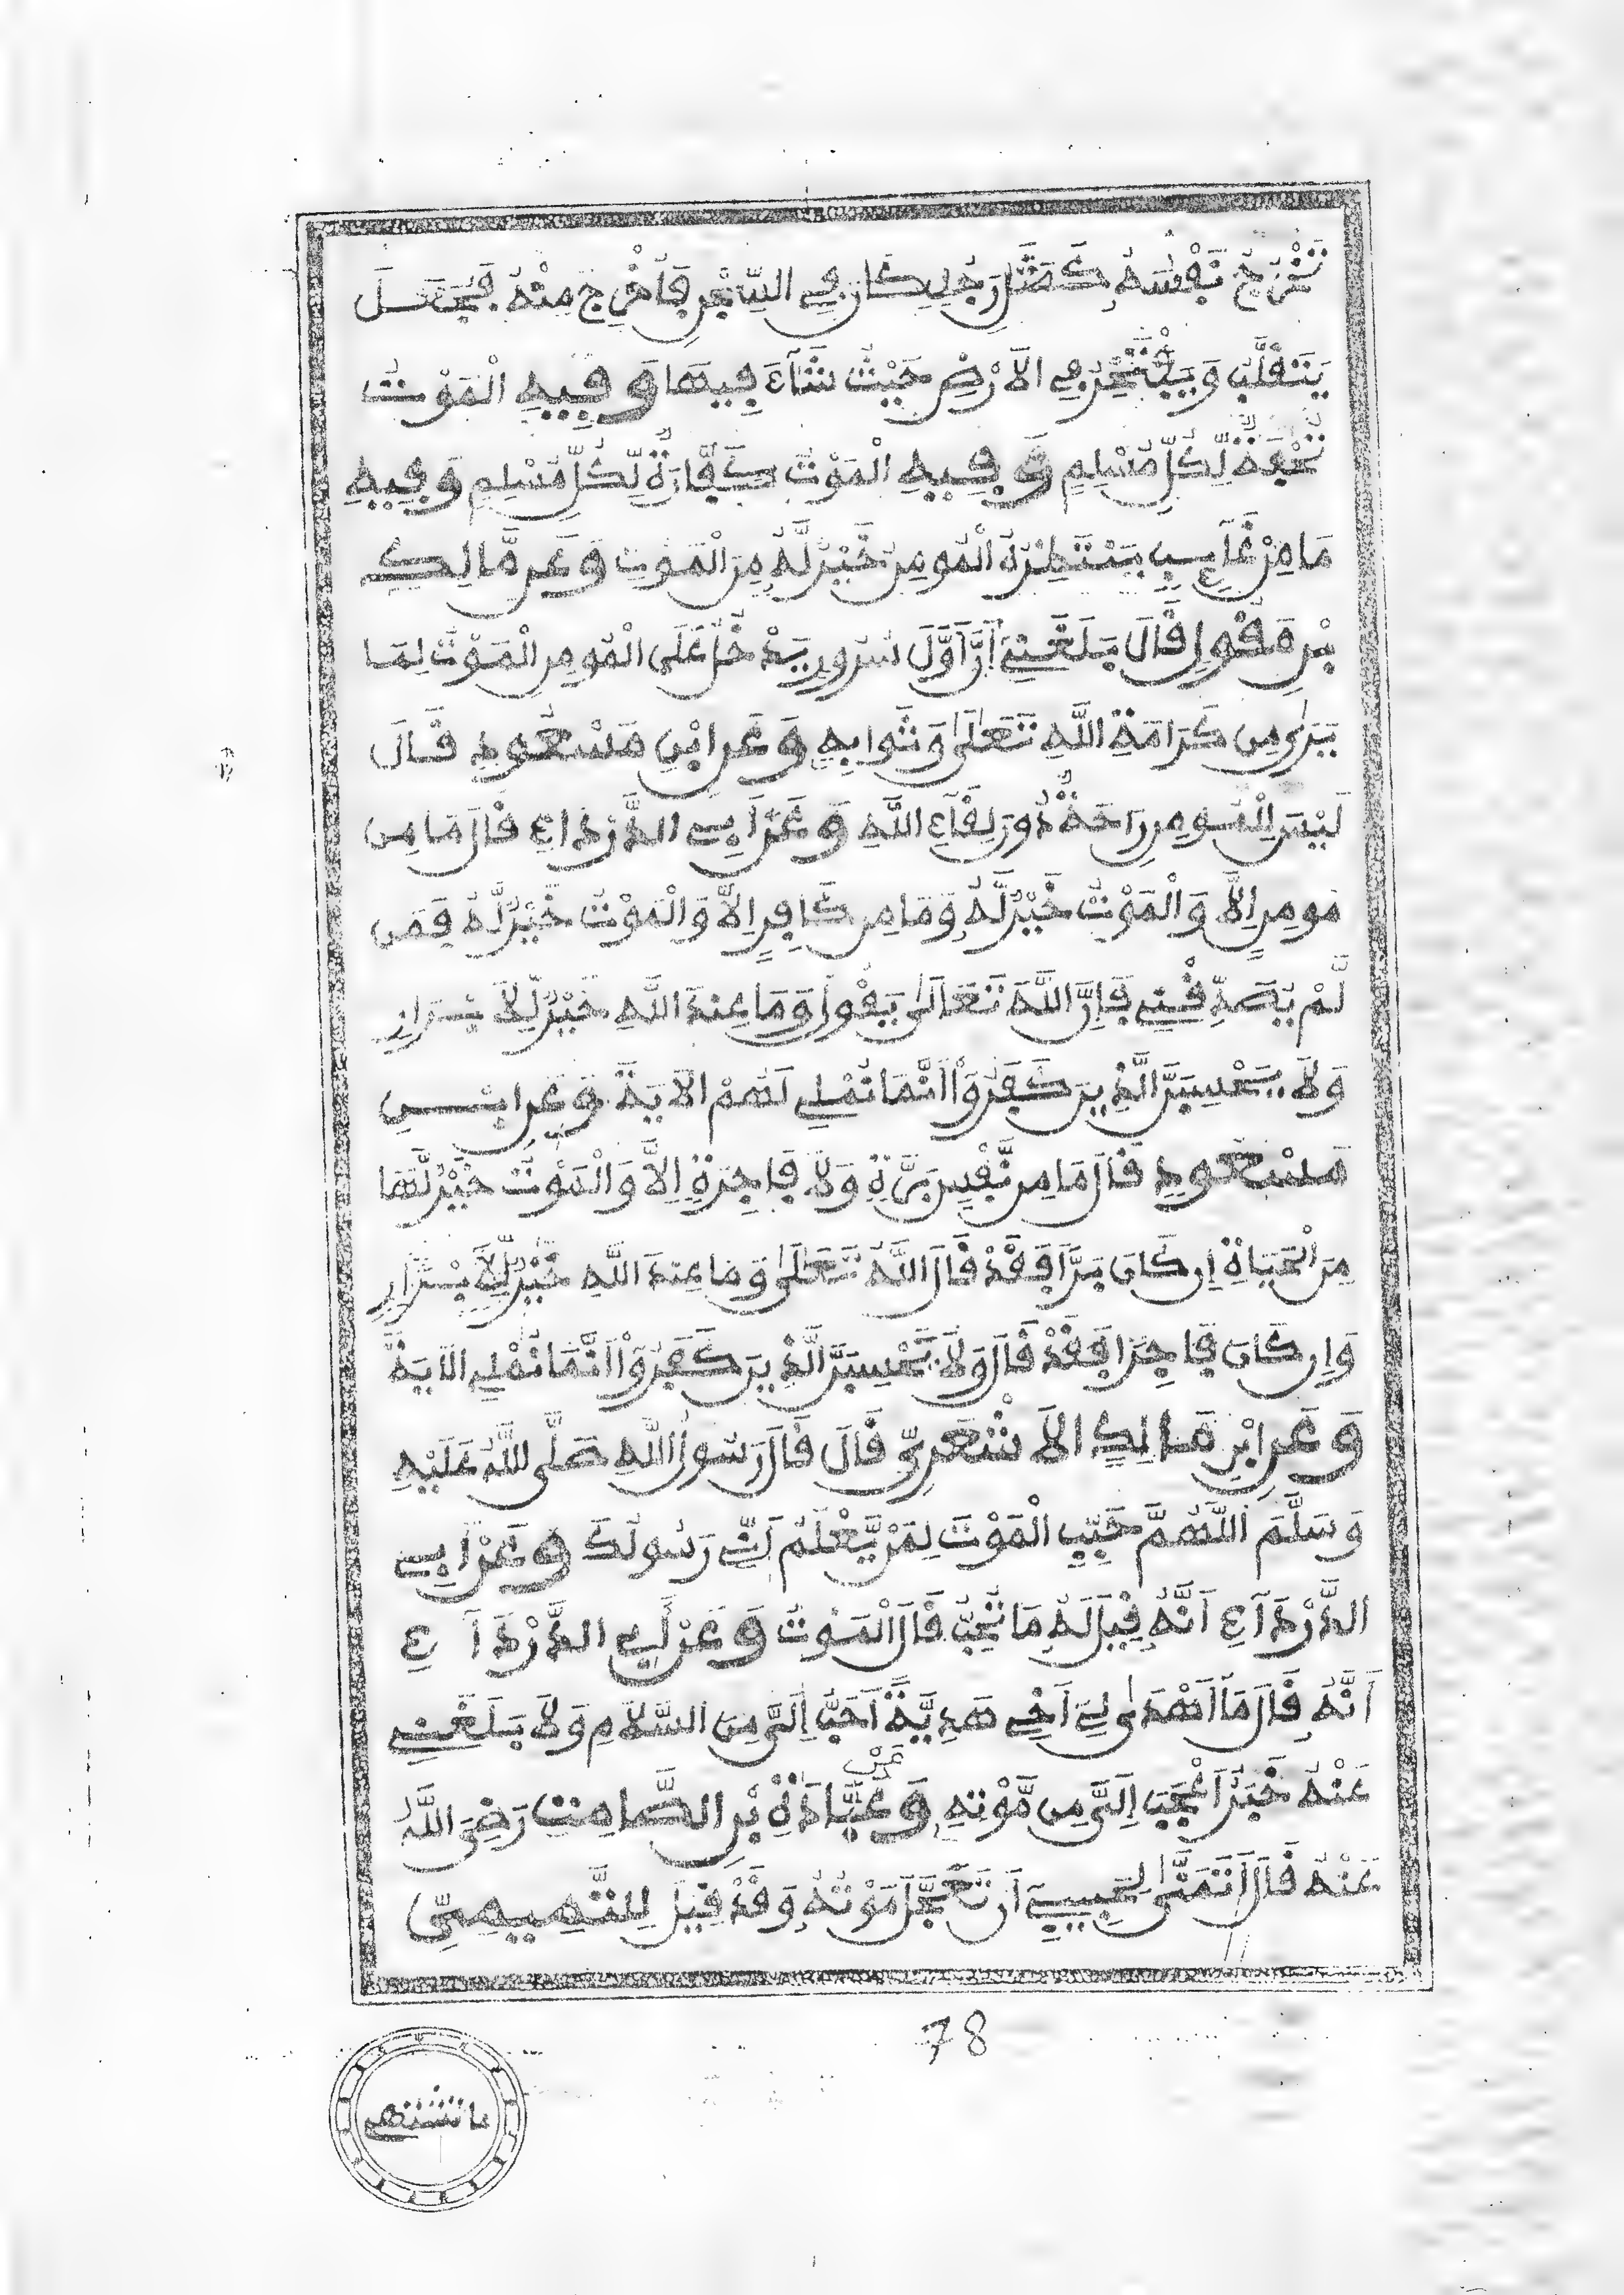 تَخْرُجُ نَفْسُهُ كَمَثَلِ رَجُلٍ كَانَ فِي السِّجْنِ فَأُخْرِجَ مِنْهُ فَجَعَلَ
يَتَقَلَّبُ وَيَتَبَخْتَرُ فِي الَارْضِ حَيْثُ شَآءَ فِيهَا وَفِيهِ الْمَوْتُ
تُحْفَةٌ لِّكُلِّ مُسْلِمٍ وَفِيهِ الْمَوْتُ كَفَّارَةٌ لِّكُلِّ مُسْلِمٍ وَفِيهِ
مَا مِنْ غَآئِبٍ يَنْتَظِرُهُ الْمُومِنُ خَيْرٌ لَّهُ مِنَ الْمَوْتِ وَعَن مَّالِكِ
بْنِ مَغْوَلٍ قَالَ بَلَغَنِي أَنَّ أَوَّلَ سُرُورٍ يَدْخُلُ عَلَى الْمُومِنِ الْمَوْتُ لِمَا
يَرَى مِن كَرَامَةِ اللَّهِ تَعَلَى وَثَوَابِهِ وَعَنِ ابْنِ مَسْعُودٍ قَالَ
لَيْسَ لِلْمُومِنِ رَاحَةٌ دُونَ لِقَآءِ اللَّهِ وَعَنْ أَبِي الدَّرْدَاءِ قَالَ مَا مِن
مُومِنٍ إِلَّا وَالْمَوْتُ خَيْرٌ لَّهُ وَمَا مِن كَافِرٍ إِلَّا وَالْمَوْتُ خَيْرٌ لَّهُ فَمَن
لَّمْ يُصَدِّقْنِي فَإِنَّ اللَّهَ تَعَالَى يَقُولُ وَمَا عِندَ اللَّهِ خَيْرٌ لِّلَابْرَارِ
وَلَا يَحْسِبَنَّ الَّذِينَ كَفَرُواْ أَنَّمَا نُمْلِي لَهُمُ الَايَةَ وَعَنِ ابْنِ
مَسْعُودٍ قَالَ مَا مِن نَّفْسٍ بَرَّةٍ وَلَا فَاجِرَةٍ إِلَّا وَالْمَوْتُ خَيْرٌ لَّهَا
مِنَ الْحَيَاةِ إِن كَانَ بَرًّا فَقَدْ قَالَ اللَّهُ تَعَلَى وَمَا عِندَ اللَّهِ خَيْرٌ لِّلَابْرَارِ
وَإِن كَانَ فَاجِرًا فَقَدْ قَالَ وَلَا تَحْسِبَنَّ الَّذِينَ كَفَرُواْ أَنَّمَا نُمْلِي الَايَةَ
وَعَنِ ابْنِ مَالِكٍ الَاشْعَرِيِّ قَالَ قَالَ رَسُولُ اللَّهِ صَلَّى اللَّهُ عَلَيْهِ
وَسَلَّمَ اللَّهُمَّ حَبِّبِ الْمَوْتَ لِمَنْ يَّعْلَمُ أَنِّي رَسُولُكَ وَعَنْ أَبِي
الدَّرْدَآءِ أَنَّهُ قِيلَ لَهُ مَا تُحِبُّ قَالَ الْمَوْتُ وَعَنْ أَبِي الدَّرْدَآءِ
أَنَّهُ قَالَ مَآ أَهْدَى لِي أَخِي هَدِيَّةً أَحَبَّ إِلَيَّ مِنَ السَّلَامِ وَلَا بَلَغَنِي
عَنْهُ خَبَرٌ أَعْجَبَ إِلَيَّ مِن مَّوْتِهِ وَعَنْ عُبَادَةَ بْنِ الصَّامِتِ رَضِيَ اللَّهُ
عَنْهُ قَالَ أَتَمَنَّى لِحَبِيبِي أَن تَعَجَّلَ مَوْتُهُ وَقَدْ قِيلَ لِلتَّمِيمِيِّ
78
ما تشتهي